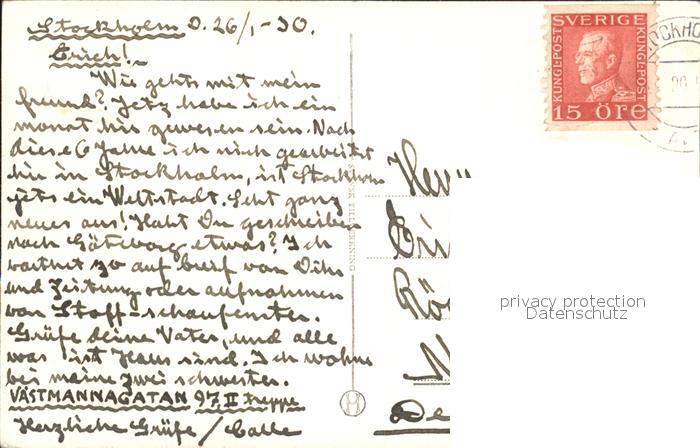 Stockholm D. 26/1-30.
Erich!
Wie gehts mit mein
freund? Jetz habe ich ein
monat hir gewesen sein. Nach
diese 6 Jahre ich nich gearbeitet
hir in Stockholm, ist Stockholm
jets ein Weltstadt. Seht ganz
neues aus! Haht Du geschrieben
nach Göteborg etwas? Ich
warthet zo auf breif van Dihr
und Zeitung oder aufnahmen
van Stoff-schaufenster.
Grüfe deine Vater, und alle
was ist Haus sind. Ich wohne
bei meine zwei schwester.
VÄSTMANNAGATAN 97 II treppe
Herzliche Grüfe / Calle
SVERIGE
KUNGL-POST
KUNGL-POST
15 ÖRE
OCKHO
Her
Eri
Rö
De
privacy protection
Datenschutz